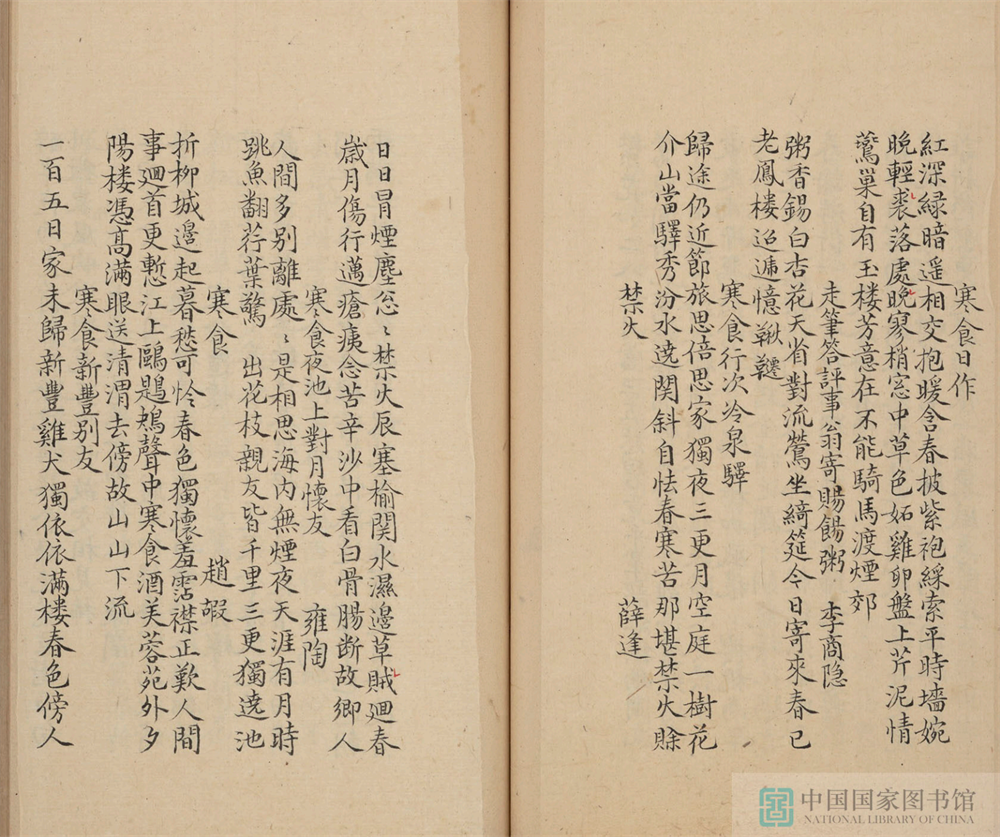 寒食日作
紅深緑暗遥相交抱暖含春披紫袍綵索平時墻婉
晚輕裘落處晚寥梢窓中草色妬雞卵盤上芹泥情
鷰巢自有玉楼芳意在不能騎馬渡煙郊
走筆答評事翁寄賜餳粥 李商隐
粥香錫白杏花天省對流鶯坐綺筵今日寄來春已
老鳳楼迢逓憶鞦韆
寒食行次冷泉驛
歸途仍近節旅思倍思家獨夜三更月空庭一樹花
介山當驛秀汾水遶関斜自怯春寒苦那堪禁火賖
禁火 薛逢
日日冒煙塵忩〻禁火辰塞榆関水濕邊草賊廻春
歳月傷行邁瘡痍念苦辛沙中看白骨腸断故鄉人
寒食夜池上對月懷友 雍陶
人間多别離處〻是相思海内無煙夜天涯有月時
跳魚翻荇葉驚 出花枝親友皆千里三更獨遶池
寒食 趙嘏
折柳城邉起暮愁可怜春色獨懷羞霑襟正歎人間
事廻首更慙江上鷗鶗鴂聲中寒食酒芙蓉苑外夕
陽楼憑髙滿眼送清渭去傍故山山下流
寒食新豐别友
一百五日家未歸新豐雞犬獨依依滿楼春色傍人
中国国家图书馆
NATIONAL LIBRARY OF CHINA